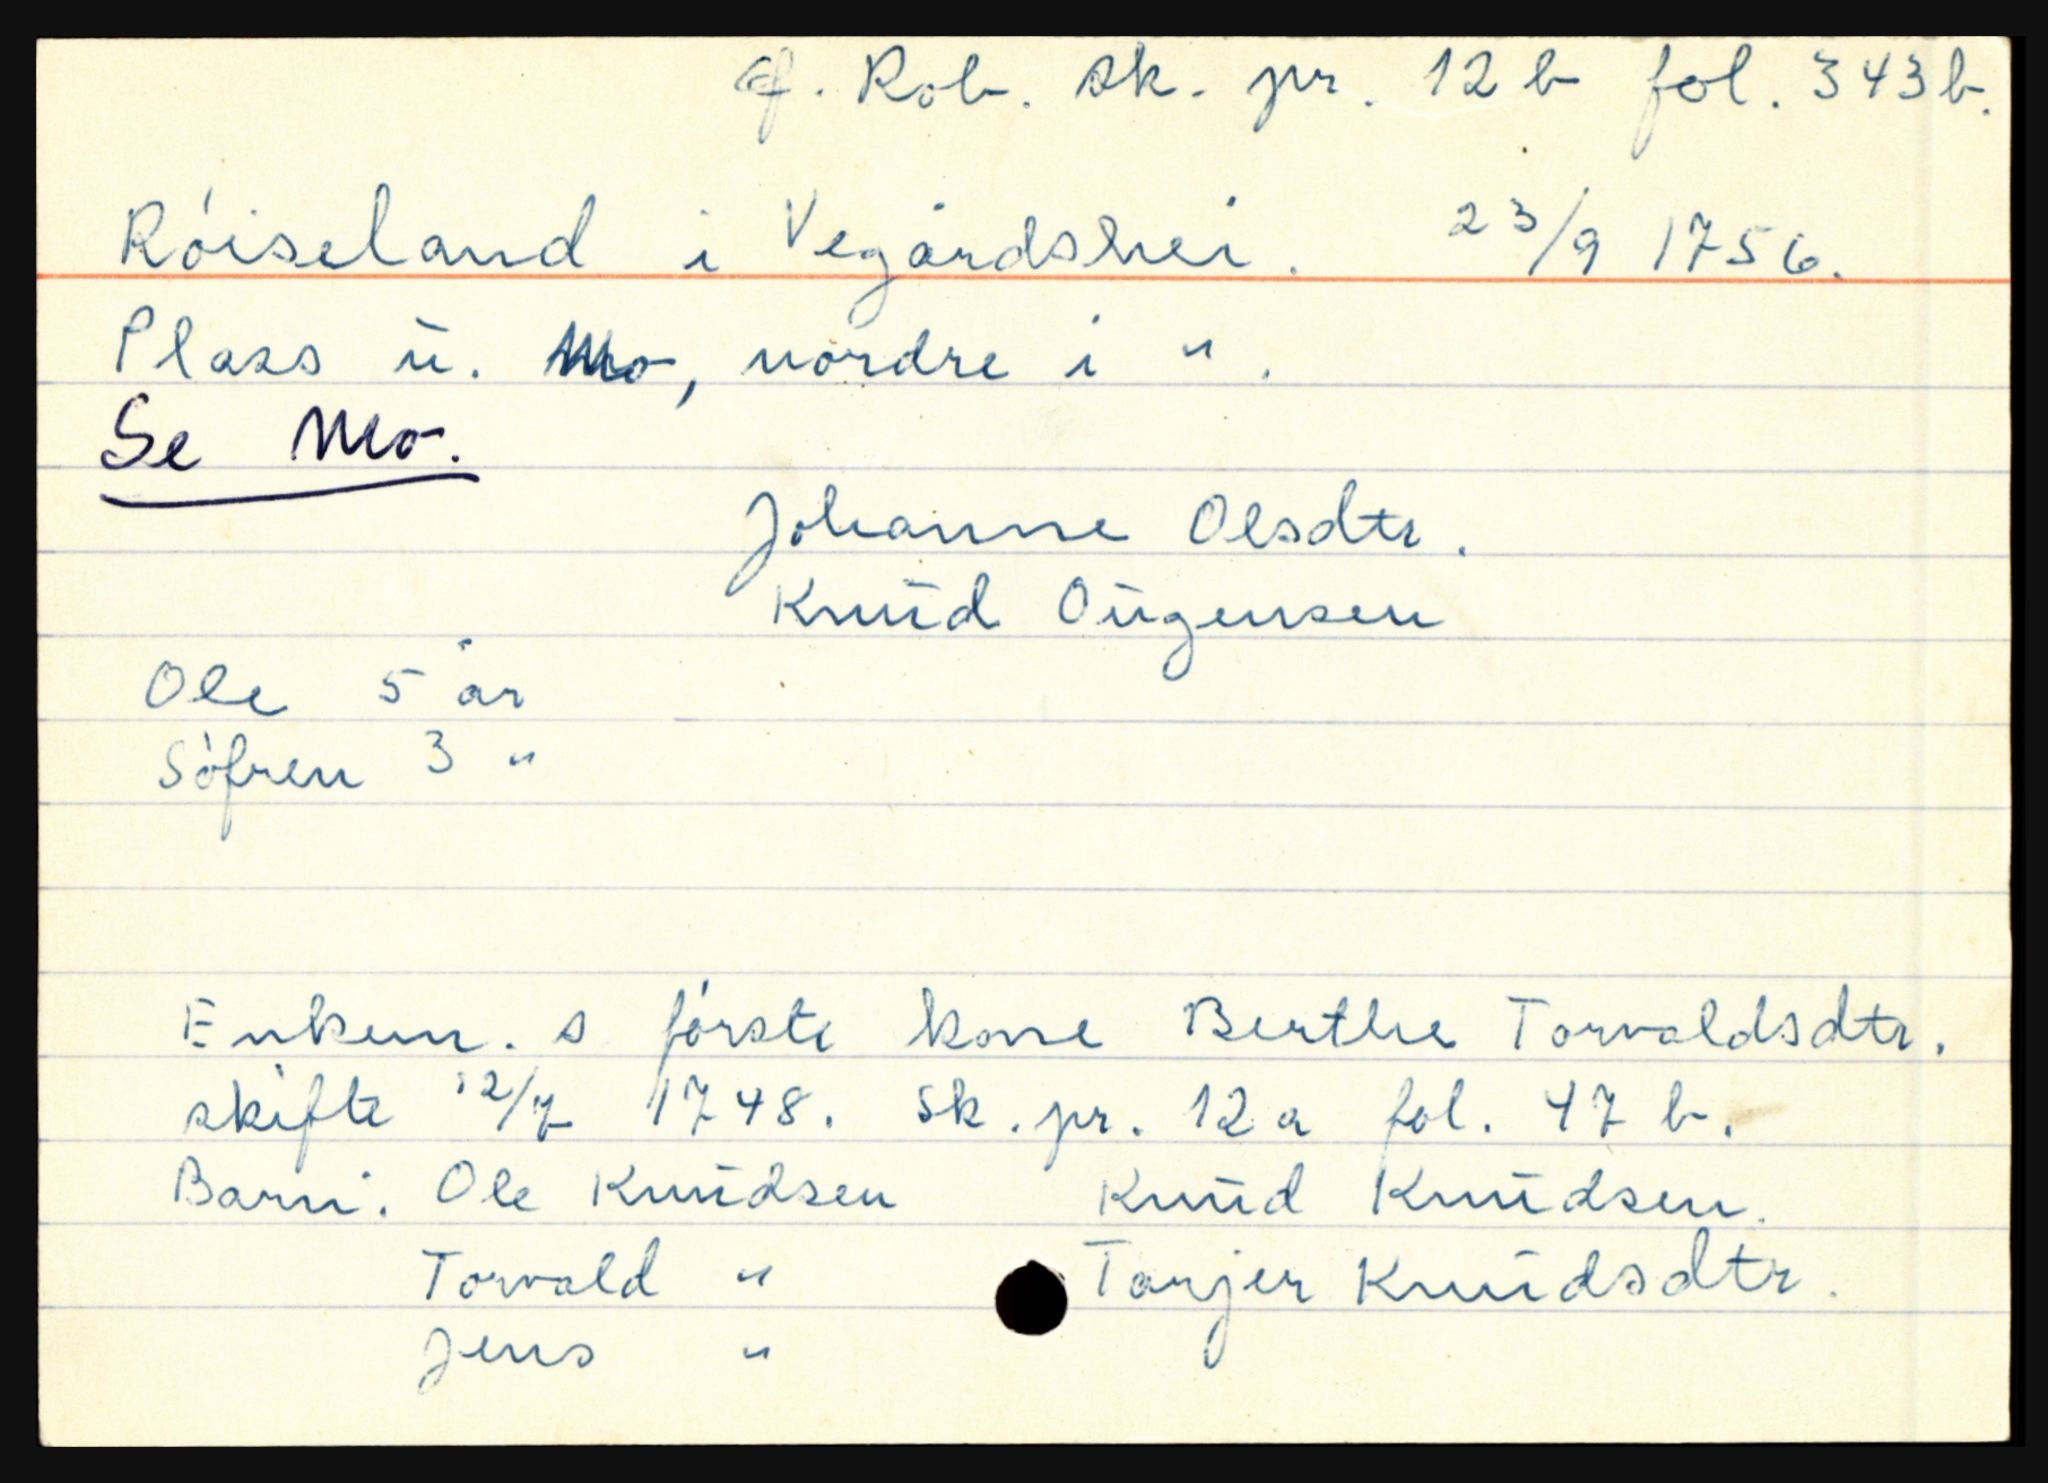 Rob. sk. pr. 12 b fol. 343 b.
Röiseland i Vegårdshei. 23/9 1756.
Plass u. Mo, nordre i ".
Se Mo.
Johanne Olsdtr.
Knud Ougensen
Ole 5 år
Söfren 3 "
Enkem. s förste kone Berthe Torvaldsdtr.
skifte 12/7 1748. Sk. pr. 12 a fol. 47 b.
Barn: Ole Knudsen Knud Knudsen.
Torvald " Tarjer Knudsdtr.
Jens "